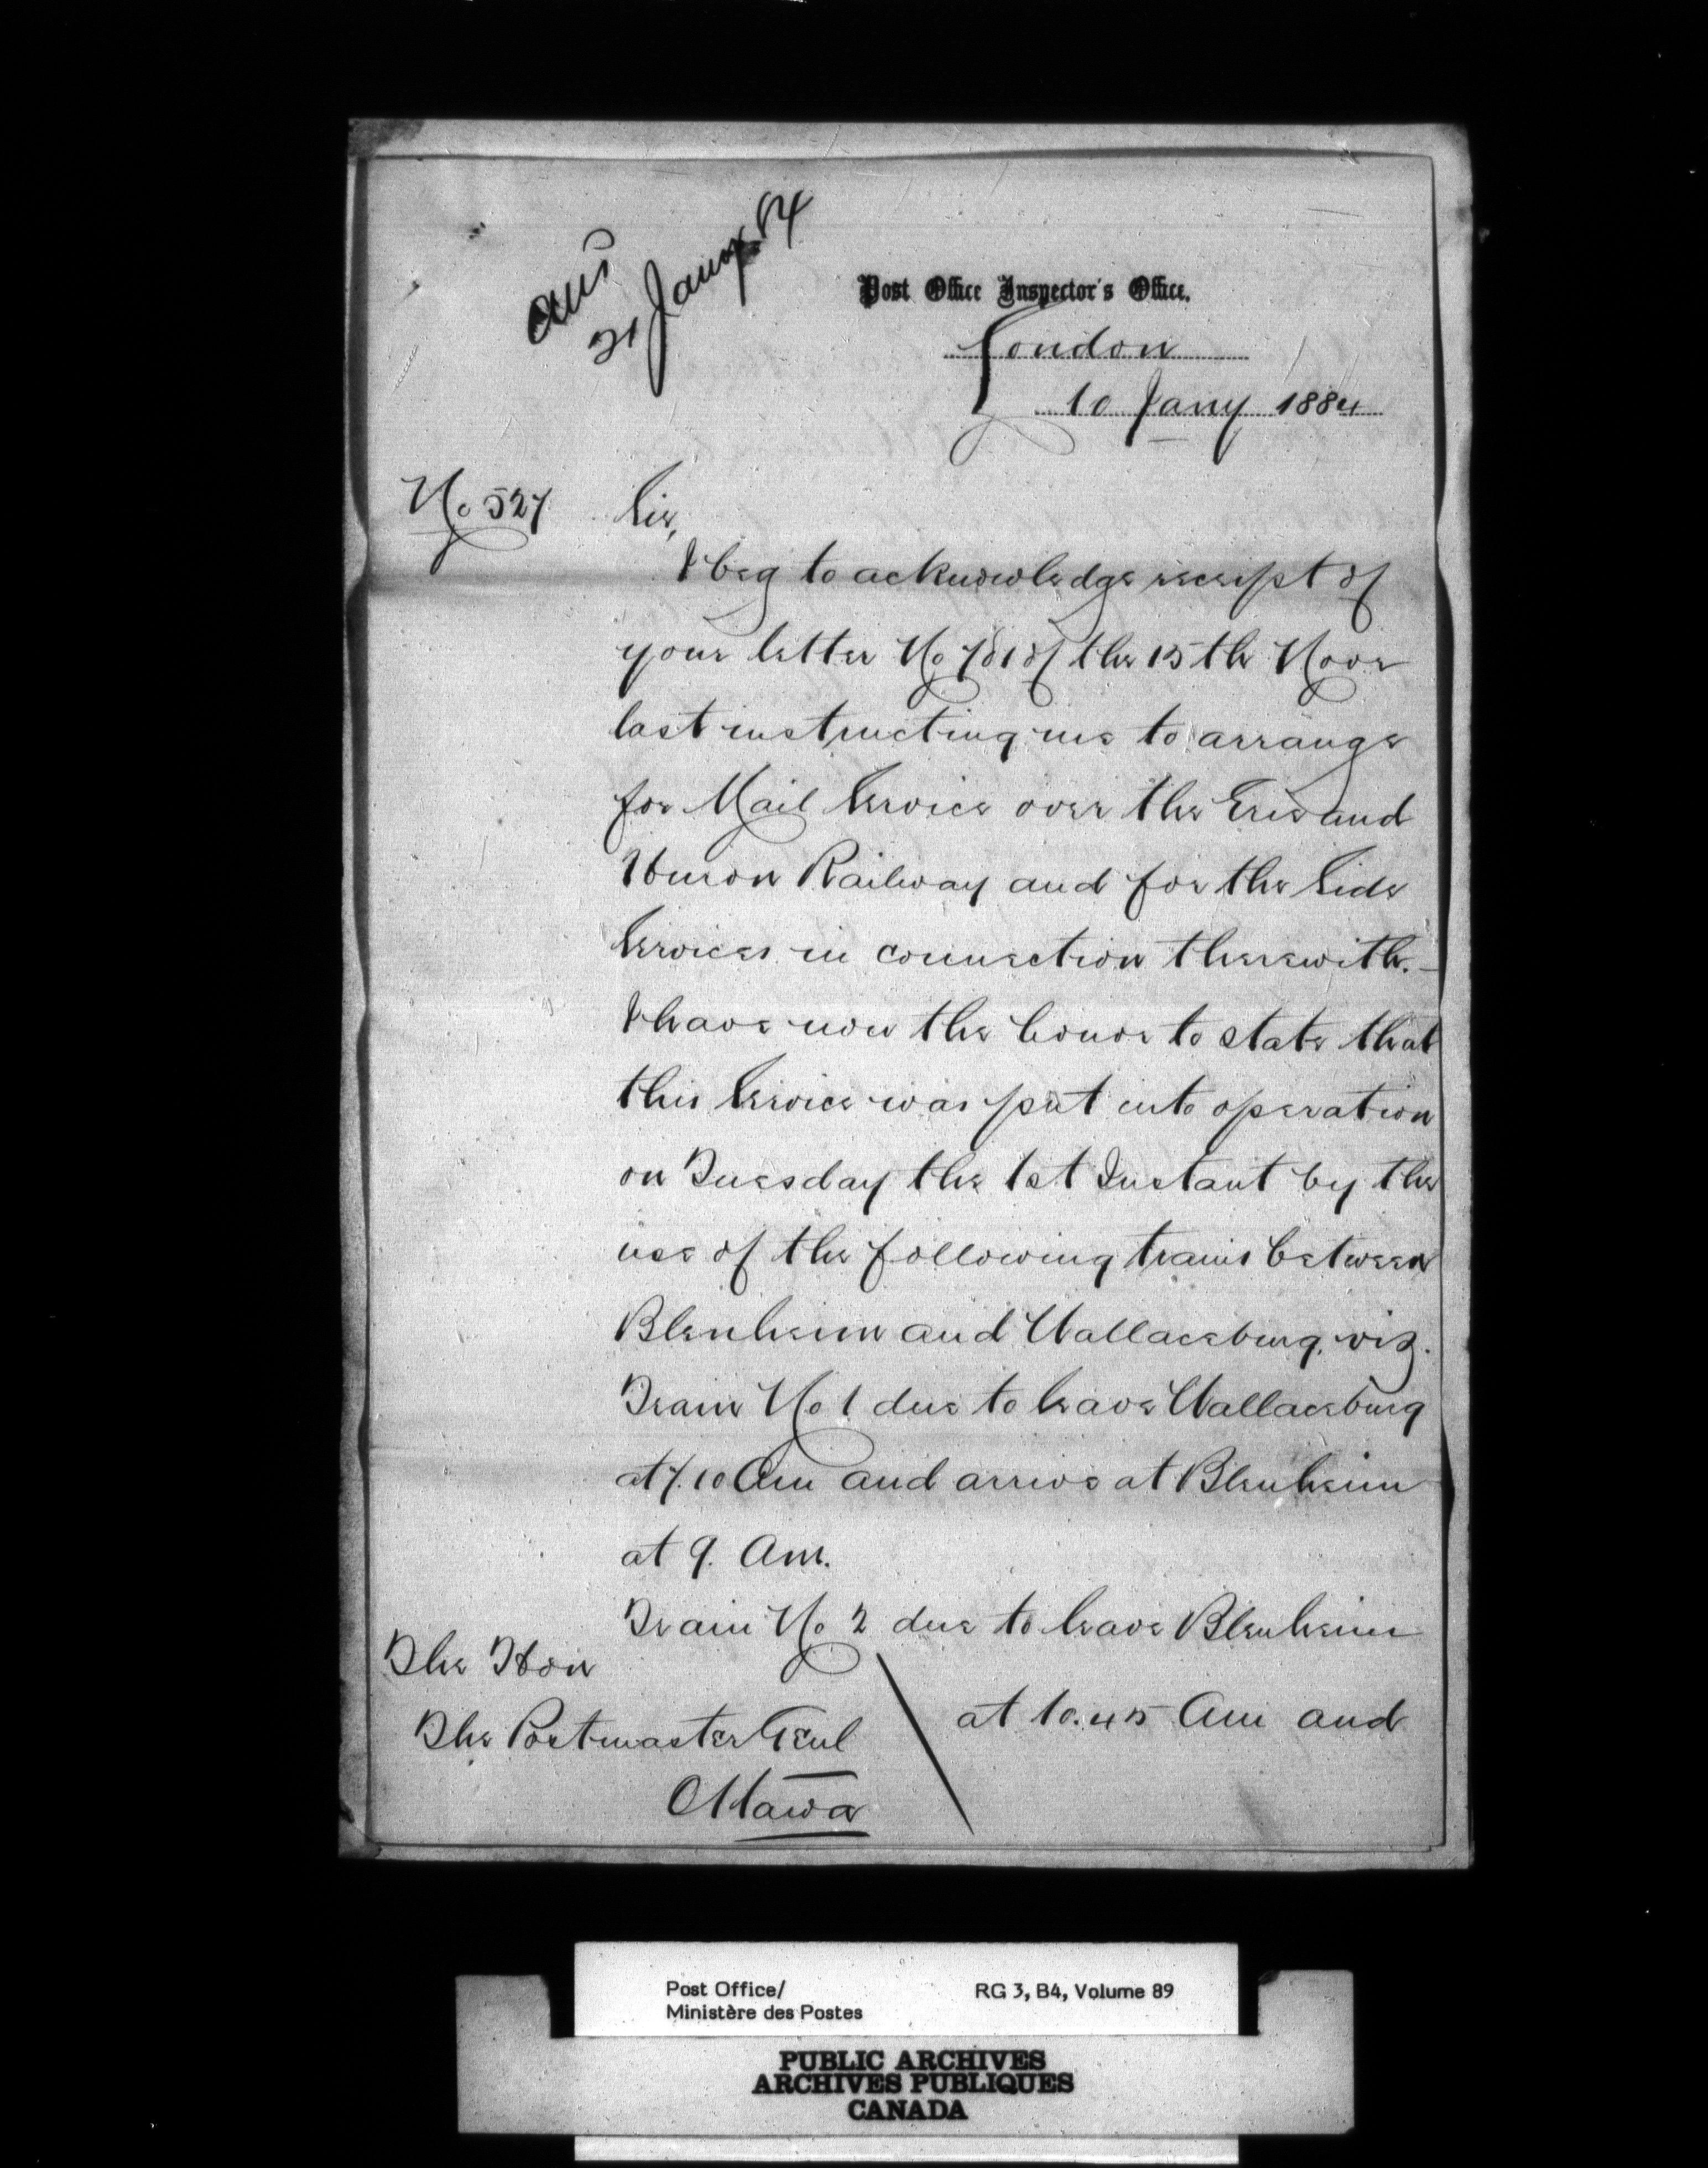 ans
21 Jany 84
Post Office Inspector's Office,
London
10 Jany 1884
No 527
Sir,
I beg to acknowledge receipt of
your letter No 781 of the 15th Novr
last instructing me to arrange
for Mail Service over the Erie and
Huron Railway and for the Side
Services in connection therewith.—
I have now the honor to state that
this Service was put into operation
on Tuesday the 1st Instant by the
use of the following trains between
Blenheim and Wallaceburg, viz.
Train No 1 due to leave Wallaceburg
at 7.10 Am and arrive at Blenheim
at 9. Am.
Train No 2 due to leave Blenheim
at 10.45 Am and
The Hon
The Postmaster Genl
Ottawa
Post Office/
Ministère des Postes
RG 3, B4, Volume 89
PUBLIC ARCHIVES
ARCHIVES PUBLIQUES
CANADA